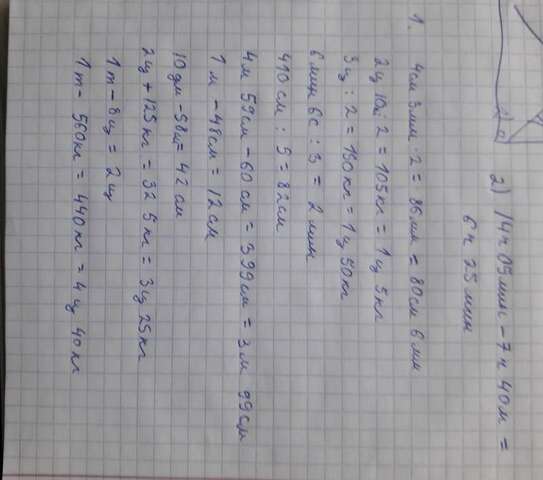 2) 14ч 05мин - 7ч 40м =
6ч 25мин
1. 4см 3мм · 2 = 86мм = 80см 6мм
2ц 10к : 2 = 105кг = 1ц 5кг
3ц : 2 = 150кг = 1ц 50кг
6мин 6с : 3 = 2мин
410см : 5 = 82см
4м 59см - 60см = 399см = 3м 99см
1м - 48см = 12см
10дм - 58см = 42см
2ц + 125кг = 325кг = 3ц 25кг
1т - 8ц = 2ц
1т - 560кг = 440кг = 4ц 40кг